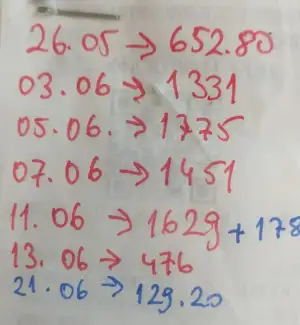 26.05 → 652.80
03.06 → 1331
05.06. → 1775
07.06 → 1451
11.06 → 1629 + 178
13.06 → 476
21.06 → 129.20